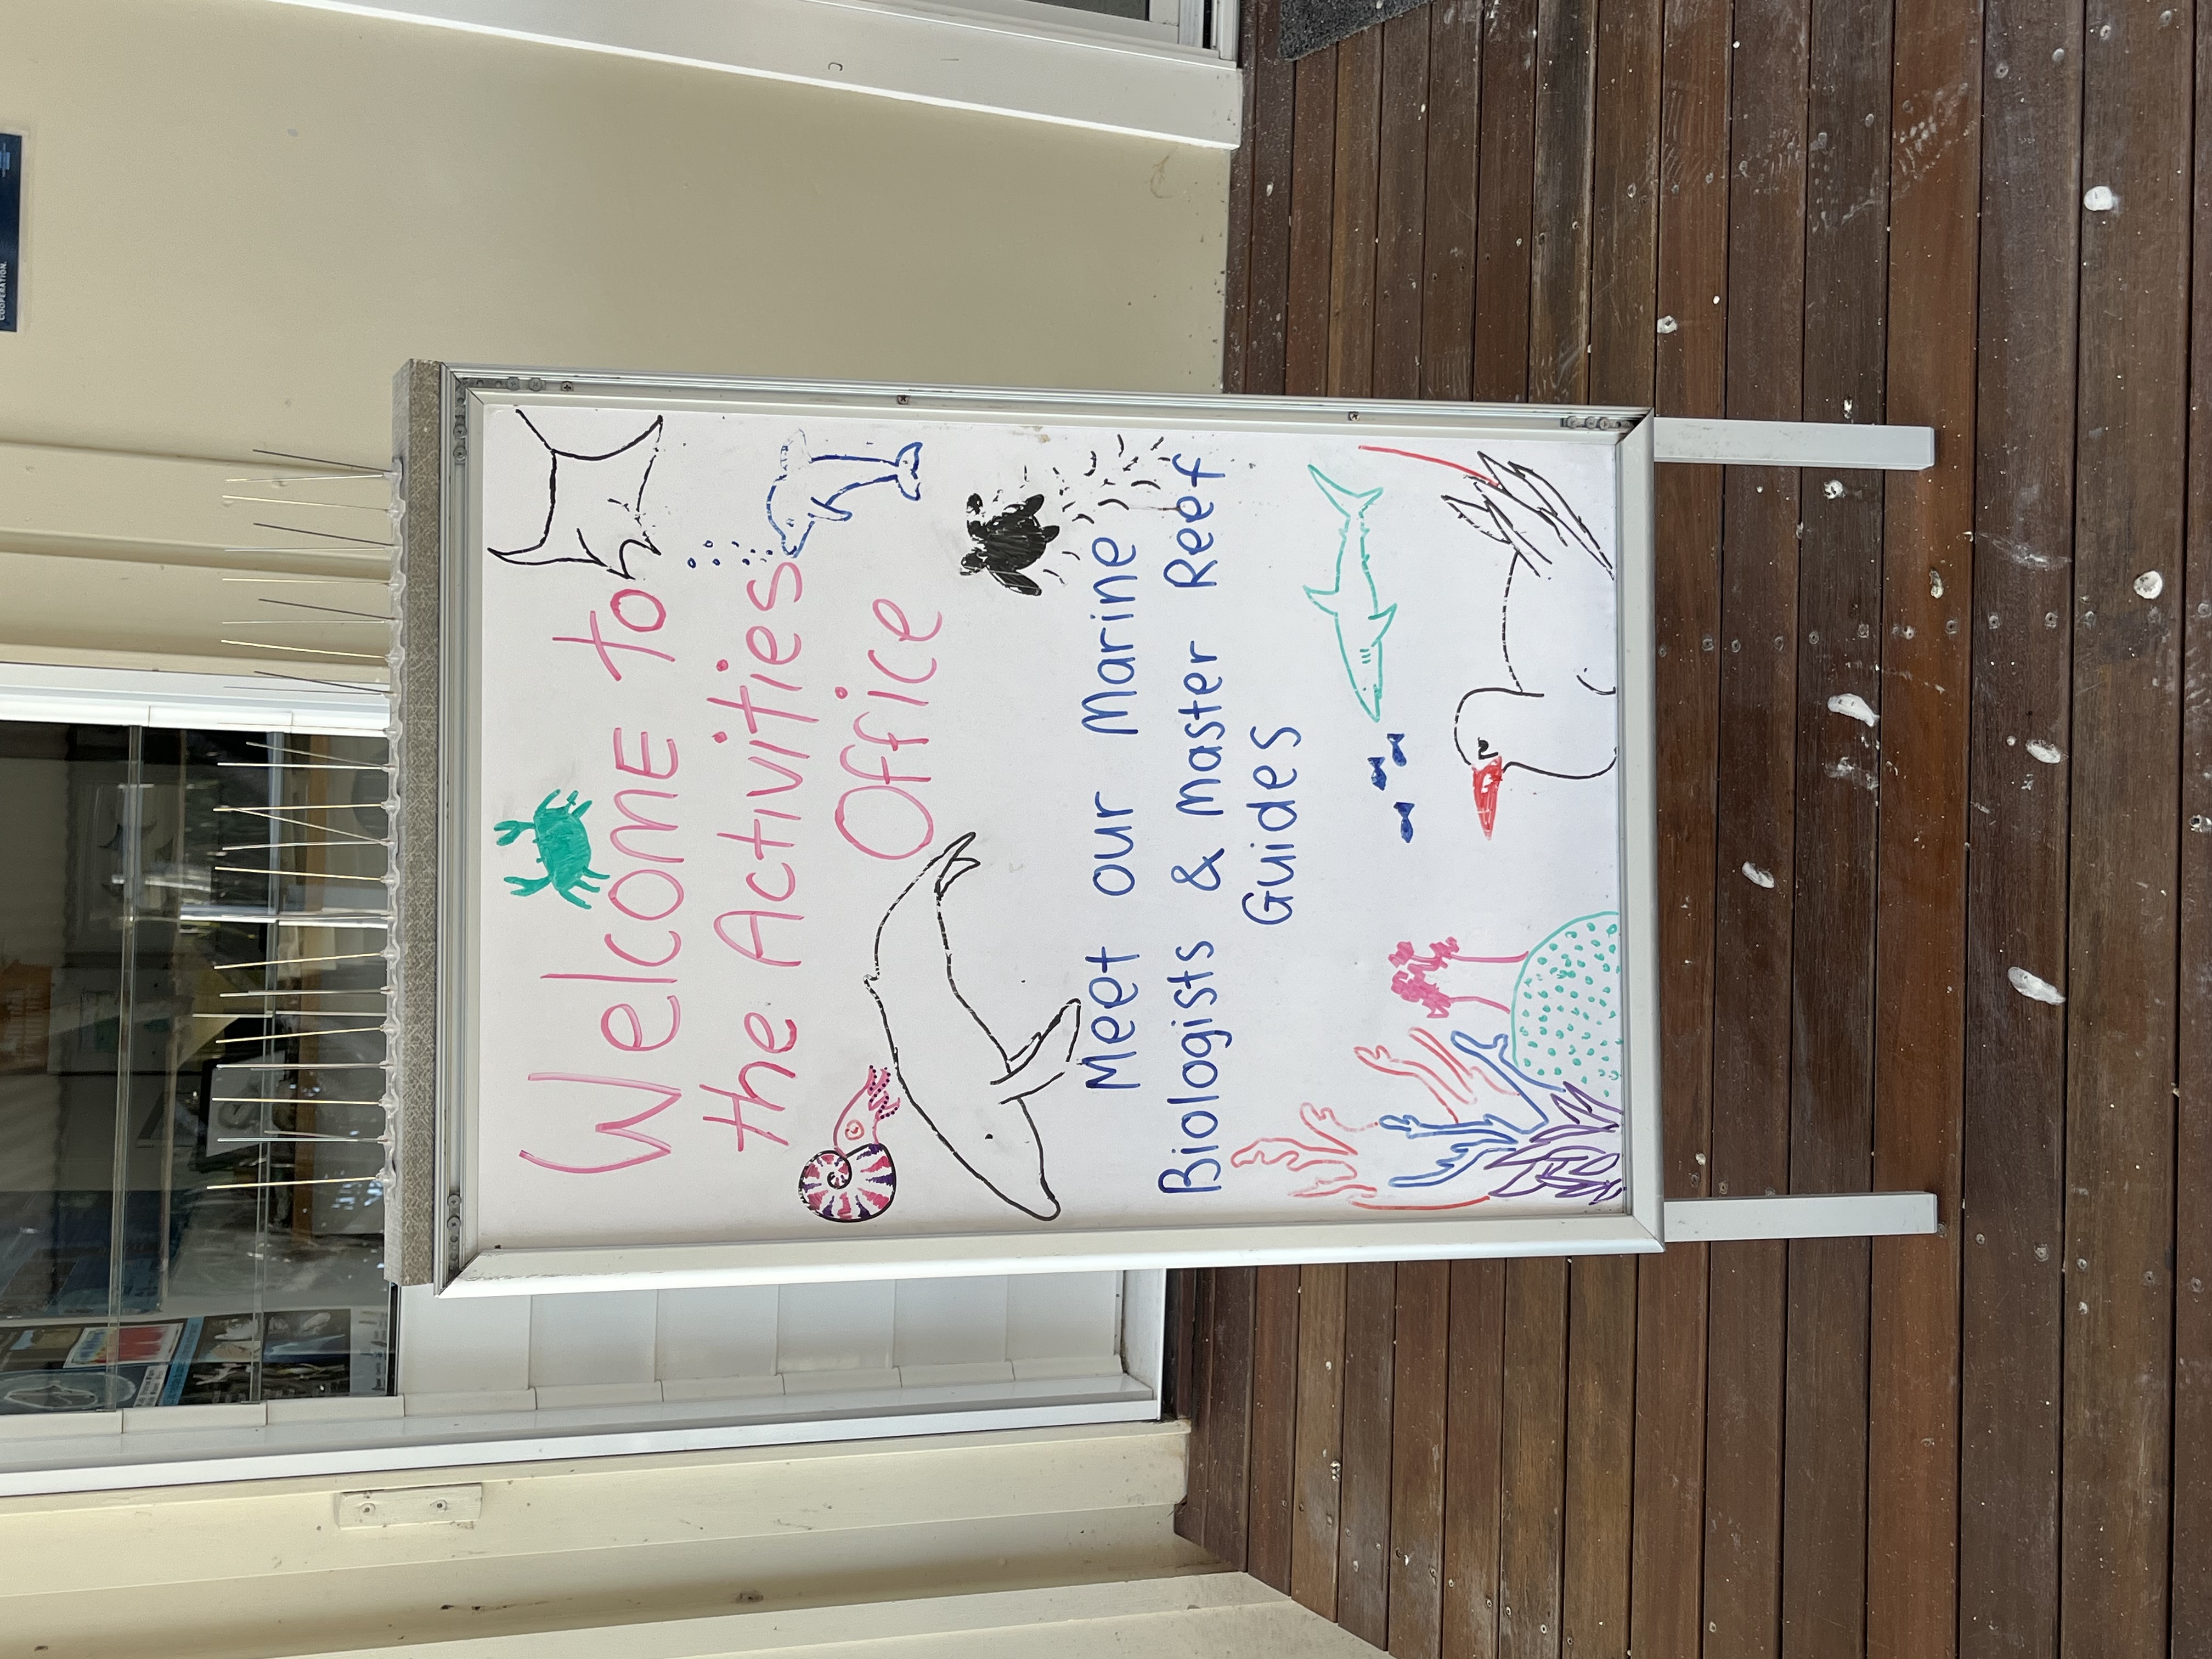 Welcome to
the Activities
Office
Meet our Marine
Biologists & Master Reef
Guides
COOPERATION.